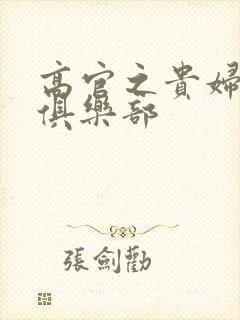 高官之貴婦
俱樂部
張劍勸